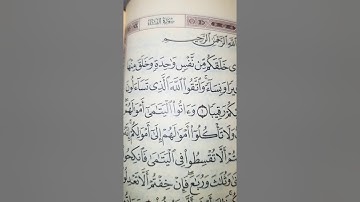 سورة النساء
الله الرحمن الرحيم
ى خلقكم من نفس وحدة وخلق منها
يرا ونساء واتقوا الله الذى تساءلون
كم رقيبا ١ وءاتوا اليتمى أمولهم
ولا تأكلوا أمولهم إلى أمولكم
تم ألا تقسطوا فى اليتمى فانكحوا
وثلث وربع فإن خفتم ألا تعد